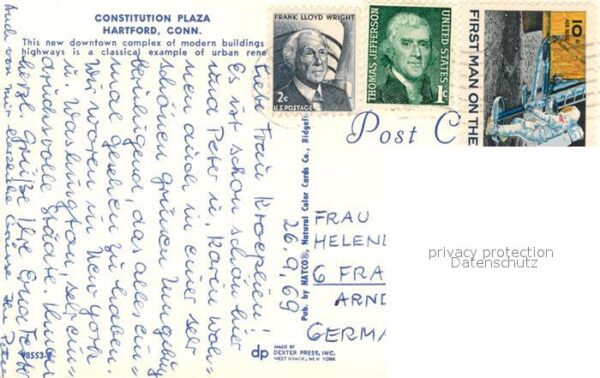 CONSTITUTION PLAZA
HARTFORD, CONN.
This new downtown complex of modern buildings
highways is a classical example of urban rene
FRANK LLOYD WRIGHT
2c
U.S. POSTAGE
THOMAS JEFFERSON
UNITED STATES
1c
FIRST MAN ON THE
10c
AIR MAIL
Post C
26.9.69
Liebe Frau Kroeplien!
Es ist schön hier
und Peter u. Karin woh-
nen auch in einer sehr
schönen grünen Umgebung
beruhigend, das alles ein-
mal gesehen zu haben.
Wir waren in New York
u. Washington, sehr ein-
drucksvolle Städte.
herzl. Grüße Ihre
Auch von mir herzliche Grüsse Ihr Peter
Pub. by NATCO, Natural Color Cards Co., Ridgef
FRAU
HELENE
6 FRA
ARND
GERMA
privacy protection
Datenschutz
98553-B
dp
MADE BY
DEXTER PRESS, INC.
WEST NYACK, NEW YORK